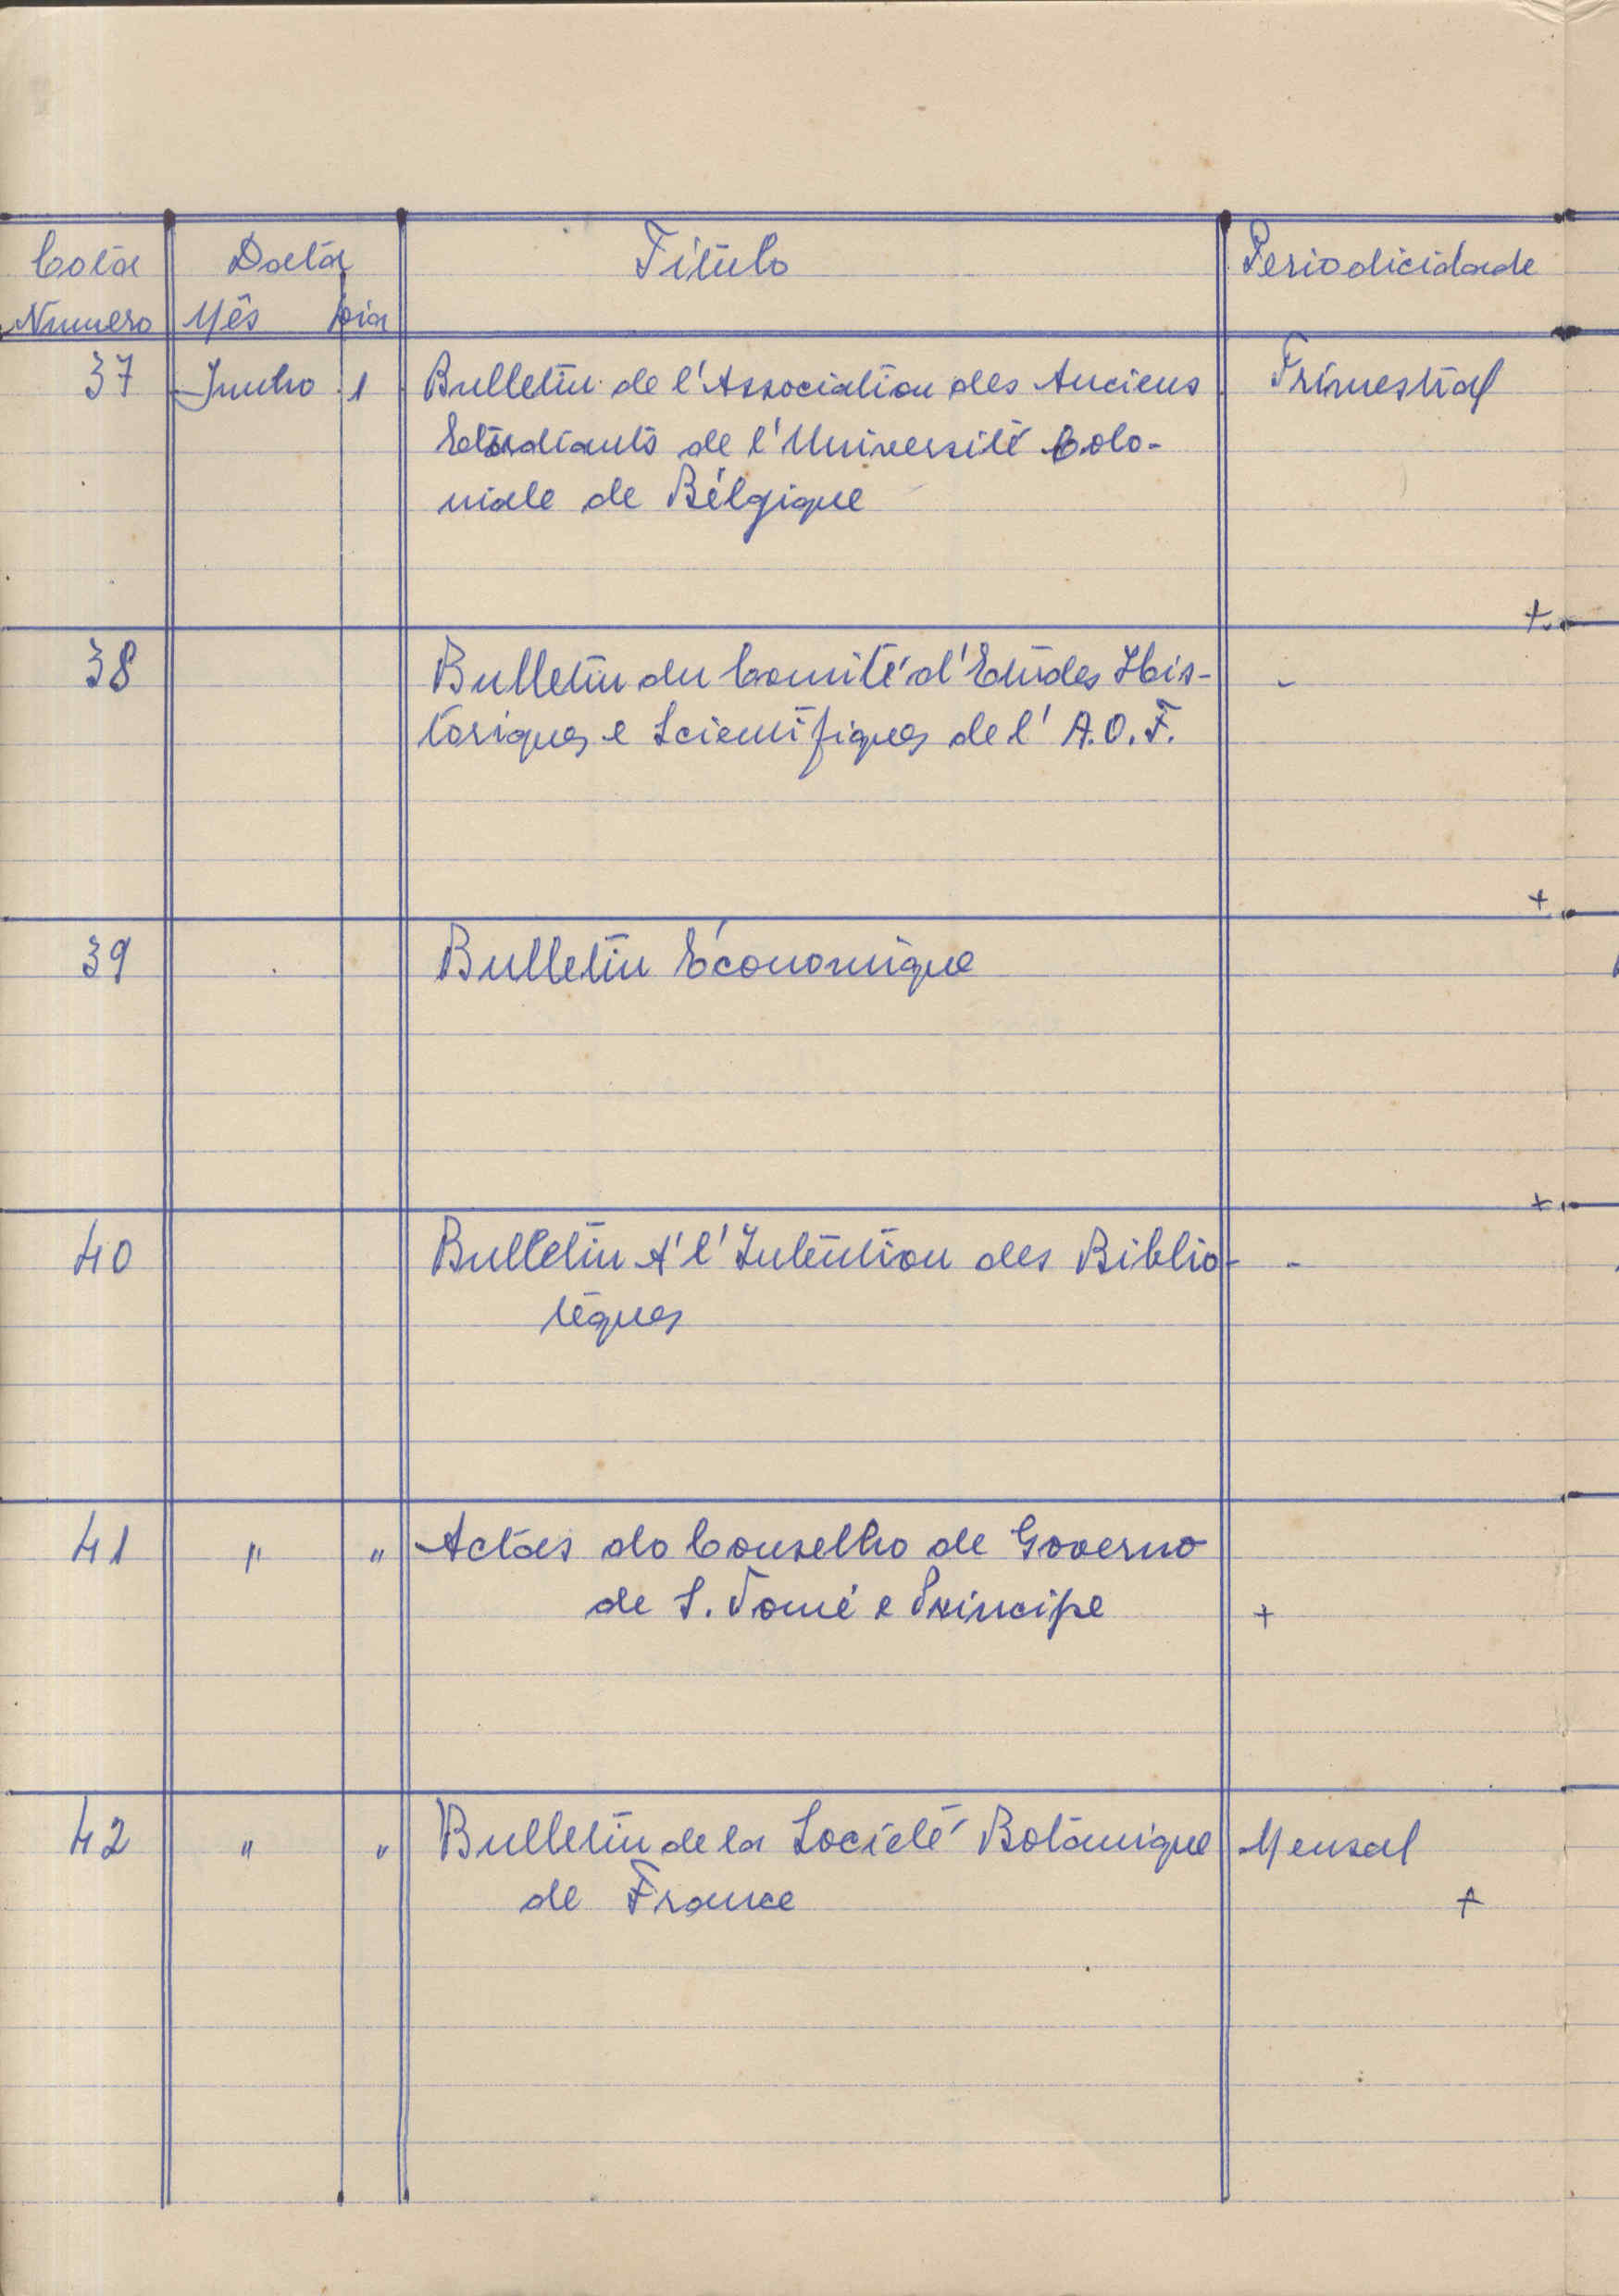 Cota Data Título Periodicidade
Numero Mês Dia
37 Junho 1 Bulletin de l'Association des Anciens Trimestral
Etudiants de l'Université Colo-
niale de Bélgique
+
38 Bulletin du Comité d'Etudes His- -
toriques e Scientifiques de l' A.O.F.
+
39 Bulletin Économique
+
40 Bulletin A' l' Intention des Biblio- -
téques
41 " " Actas do Conselho de Governo
de S. Tomé e Principe +
42 " " Bulletin de la Société Botanique Mensal
de France +